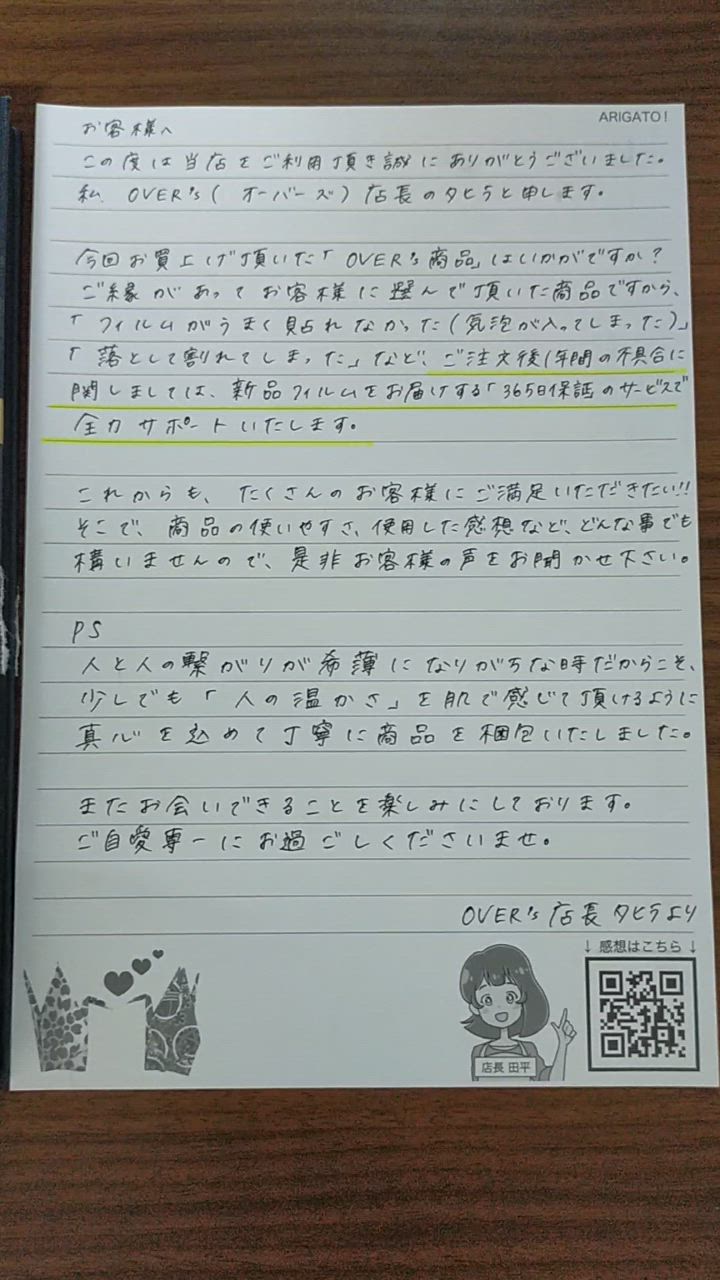 ARIGATO!
お客様へ
この度は当店をご利用頂き誠にありがとうございました。
私、OVER's(オーバーズ)店長のタヒラと申します。
今回お買上げ頂いた「OVER's商品」はいかがですか?
ご縁があってお客様に選んで頂いた商品ですから、
「フィルムがうまく貼れなかった(気泡が入ってしまった)」
「落として割れてしまった」など、ご注文後1年間の不具合に
関しましては、新品フィルムをお届けする「365日保証のサービスで
全力サポートいたします。
これからも、たくさんのお客様にご満足いただきたい!!
そこで、商品の使いやすさ、使用した感想など、どんな事でも
構いませんので、是非お客様の声をお聞かせ下さい。
PS
人と人の繋がりが希薄になりがちな時だからこそ、
少しでも「人の温かさ」を肌で感じて頂けるように
真心を込めて丁寧に商品を梱包いたしました。
またお会いできることを楽しみにしております。
ご自愛専一にお過ごしくださいませ。
OVER's 店長 タヒラより
↓ 感想はこちら ↓
店長 田平